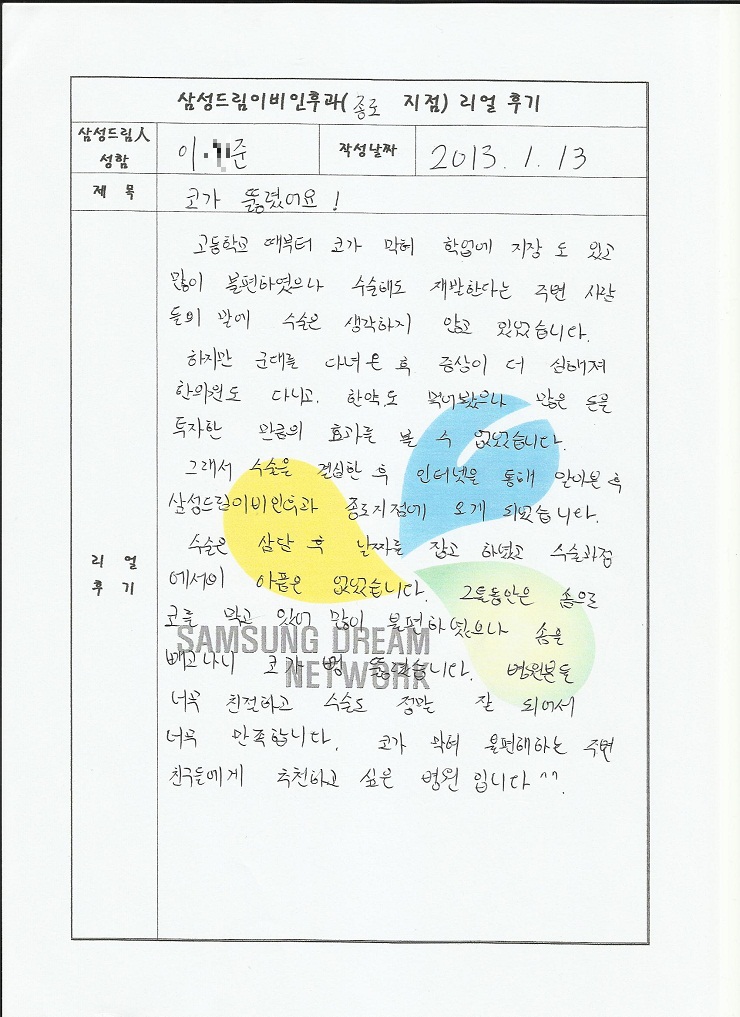 삼성드림이비인후과( 종로 지점) 리얼 후기
삼성드림人
성함
이 준
작성날짜
2013. 1. 13
제 목
코가 뚫렸어요!
리 얼
후 기
고등학교 때부터 코가 막혀 학업에 지장 도 있고
많이 불편하였으나 수술해도 재발한다는 주변 사람
들의 말에 수술은 생각하지 않고 있었습니다.
하지만 군대를 다녀온 후 증상이 더 심해져
한의원도 다니고. 한약도 먹어봤으나 많은 돈을
투자한 만큼의 효과를 볼 수 없었습니다.
그래서 수술을 결심한 후 인터넷을 통해 알아본 후
삼성드림이비인후과 종로지점에 오게 되었습니다.
수술은 상담 후 날짜를 잡고 하였고 수술과정
에서의 아픔은 없었습니다. 그틀동안은 솜으로
코를 막고 있어 많이 불편하였으나 솜을
빼고나니 코가 뻥 뚫렸습니다. 병원분들
너무 친절하고 수술도 정말 잘 되어서
너무 만족합니다. 코가 막혀 불편해하는 주변
친구들에게 추천하고 싶은 병원 입니다 ^^.
SAMSUNG DREAM
NETWORK